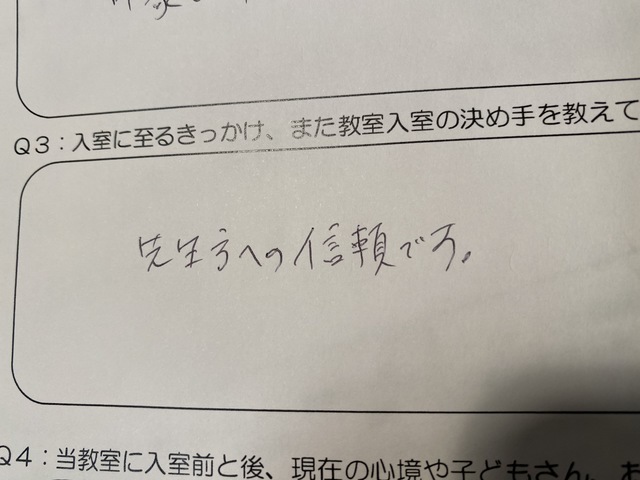 Q3：入室に至るきっかけ、また教室入室の決め手を教えて
先生方への信頼です。
Q4：当教室に入室前と後、現在の心境や子どもさん、お